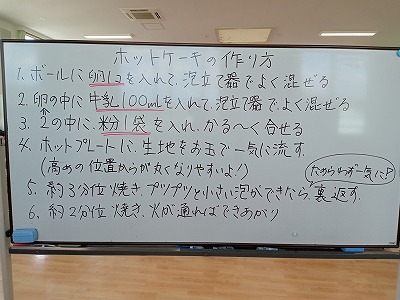 ホットケーキの作り方
1. ボールに卵1コを入れて、泡立て器でよく混ぜる
2. 卵の中に牛乳100mlを入れて、泡立て器でよく混ぜる
3. 2の中に、粉1袋を入れ、かる〜く合せる
4. ホットプレートに、生地をお玉で一気に流す。
(高めの位置からが丸くなりやすいよ!)
ためらわず一気に!
5. 約3分位焼き、プツプツと小さい泡ができたら、裏返す。
6. 約2分位焼き、火が通ればできあがり